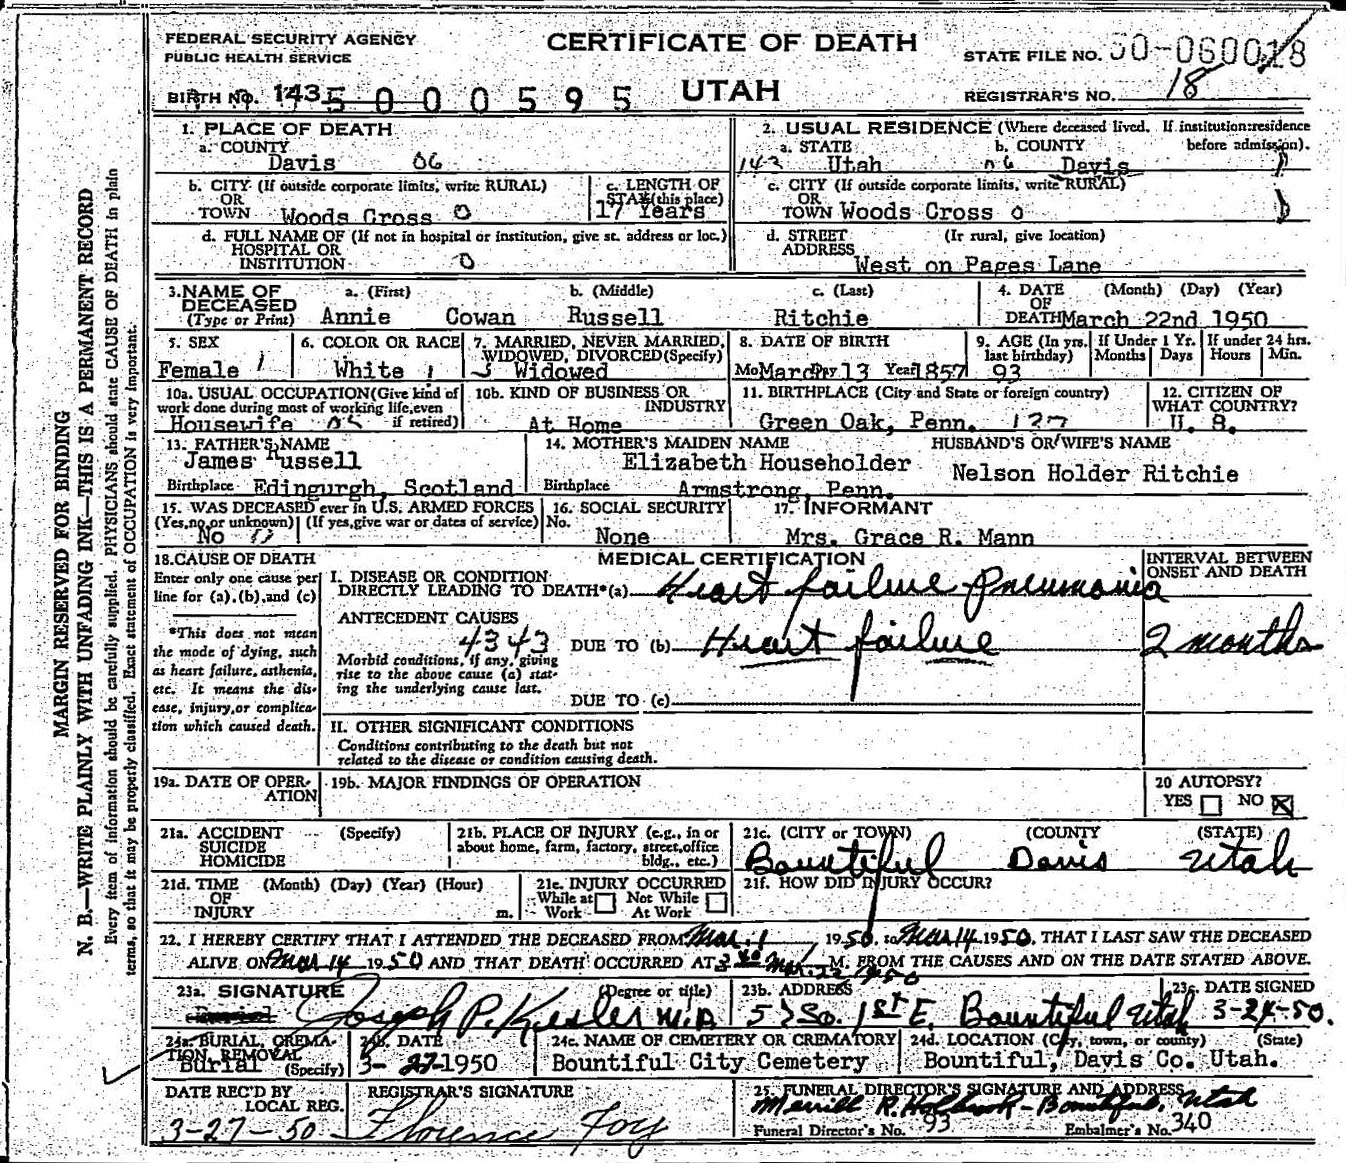 FEDERAL SECURITY AGENCY
PUBLIC HEALTH SERVICE
CERTIFICATE OF DEATH
UTAH
STATE FILE NO. 50-060018
18
BIRTH NO. 143 5 0 0 0 5 9 5
REGISTRAR'S NO.
MARGIN RESERVED FOR BINDING
N. B.—WRITE PLAINLY WITH UNFADING INK—THIS IS A PERMANENT RECORD
Every item of information should be carefully supplied. PHYSICIANS should state CAUSE OF DEATH in plain
terms, so that it may be properly classified. Exact statement of OCCUPATION is very important.
1. PLACE OF DEATH
a. COUNTY
Davis 06
b. CITY (If outside corporate limits, write RURAL)
OR
TOWN Woods Cross 0
c. LENGTH OF
STAY (this place)
17 Years
d. FULL NAME OF (If not in hospital or institution, give st. address or loc.)
HOSPITAL OR
INSTITUTION 0
2. USUAL RESIDENCE (Where deceased lived. If institution: residence
before admission).
a. STATE b. COUNTY
143 Utah 06 Davis
c. CITY (If outside corporate limits, write RURAL)
OR
TOWN Woods Cross 0
d. STREET (If rural, give location)
ADDRESS
West on Pages Lane
3. NAME OF
DECEASED
(Type or Print)
a. (First) b. (Middle) c. (Last)
Annie Cowan Russell Ritchie
4. DATE (Month) (Day) (Year)
OF
DEATH March 22nd 1950
5. SEX
Female 1
6. COLOR OR RACE
White 1
7. MARRIED, NEVER MARRIED,
WIDOWED, DIVORCED (Specify)
3 Widowed
8. DATE OF BIRTH
Mo March Day 13 Year 1857
9. AGE (In yrs.
last birthday)
93
If Under 1 Yr.
Months Days
If under 24 hrs.
Hours Min.
10a. USUAL OCCUPATION (Give kind of
work done during most of working life, even
if retired)
Housewife
10b. KIND OF BUSINESS OR
INDUSTRY
At Home
11. BIRTHPLACE (City and State or foreign country)
Green Oak, Penn. 137
12. CITIZEN OF
WHAT COUNTRY?
U. S.
13. FATHER'S NAME
James Russell
Birthplace Edingurgh, Scotland
14. MOTHER'S MAIDEN NAME
Elizabeth Householder
Birthplace Armstrong, Penn.
HUSBAND'S OR WIFE'S NAME
Nelson Holder Ritchie
15. WAS DECEASED ever in U.S. ARMED FORCES
(Yes, no, or unknown) (If yes, give war or dates of service)
No 0
16. SOCIAL SECURITY
No.
None
17. INFORMANT
Mrs. Grace R. Mann
18. CAUSE OF DEATH
Enter only one cause per
line for (a), (b), and (c)
*This does not mean
the mode of dying, such
as heart failure, asthenia,
etc. It means the dis-
ease, injury, or complica-
tion which caused death.
MEDICAL CERTIFICATION
INTERVAL BETWEEN
ONSET AND DEATH
I. DISEASE OR CONDITION
DIRECTLY LEADING TO DEATH*(a) Heart failure Pneumonia
ANTECEDENT CAUSES
4343 DUE TO (b) Heart failure 2 months
Morbid conditions, if any, giving
rise to the above cause (a) stat-
ing the underlying cause last.
DUE TO (c)
II. OTHER SIGNIFICANT CONDITIONS
Conditions contributing to the death but not
related to the disease or condition causing death.
19a. DATE OF OPER-
ATION
19b. MAJOR FINDINGS OF OPERATION
20 AUTOPSY?
YES NO
21a. ACCIDENT (Specify)
SUICIDE
HOMICIDE
21b. PLACE OF INJURY (e.g., in or
about home, farm, factory, street, office
bldg., etc.)
21c. (CITY or TOWN) (COUNTY (STATE)
Bountiful Davis Utah
21d. TIME (Month) (Day) (Year) (Hour)
OF
INJURY m.
21e. INJURY OCCURRED
While at Work
Not While At Work
21f. HOW DID INJURY OCCUR?
22. I HEREBY CERTIFY THAT I ATTENDED THE DECEASED FROM Mar. 1, 1950, to Mar 14 1950, THAT I LAST SAW THE DECEASED
ALIVE ON Mar 14 1950 AND THAT DEATH OCCURRED AT 3 40 M. FROM THE CAUSES AND ON THE DATE STATED ABOVE.
Mar. 22 1950
23a. SIGNATURE (Degree or title)
Joseph P. Kesler M.D
23b. ADDRESS
57 So. 1st E. Bountiful Utah
23c. DATE SIGNED
3-24-50.
24a. BURIAL, CREMA-
TION, REMOVAL
(Specify)
Burial
24b. DATE
3-27-1950
24c. NAME OF CEMETERY OR CREMATORY
Bountiful City Cemetery
24d. LOCATION (City, town, or county) (State)
Bountiful, Davis Co. Utah.
DATE REC'D BY
LOCAL REG.
3-27-50
REGISTRAR'S SIGNATURE
Florence Foy
25. FUNERAL DIRECTOR'S SIGNATURE AND ADDRESS
Merrill R. Holbrook - Bountiful, Utah
Funeral Director's No. 93 Embalmer's No. 340